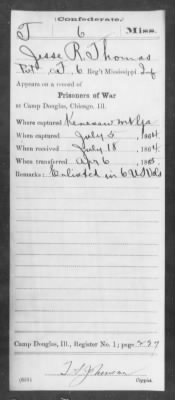 (Confederate.)
T 6 Miss.
Jesse R. Thomas
Pvt Co. I, 6 Reg't Mississippi Inf
Appears on a record of
Prisoners of War
at Camp Douglas, Chicago, Ill.
Where captured Kenesaw Mt Ga
When captured July 5, 1864
When received July 18, 1864
When transferred Apr 6, 1865.
Remarks: Enlisted in 6 U S Vols
Camp Douglas, Ill., Register No. 1; page 237
Copyist.